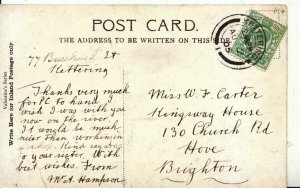 POST CARD.
THE ADDRESS TO BE WRITTEN ON THIS SIDE
Valentine's Series
Write Here for Inland Postage only
KETTERING
77 Buccleuch St
Kettering
Thanks very much
for PC to hand, I
wish I was with you
now on the river.
It would be much
nicer than working in
a shop. Kind regards
to your sister. With
best wishes. From
A. Hampson
Miss W F. Carter
Kingsway House
130 Church Rd
Hove
Brighton